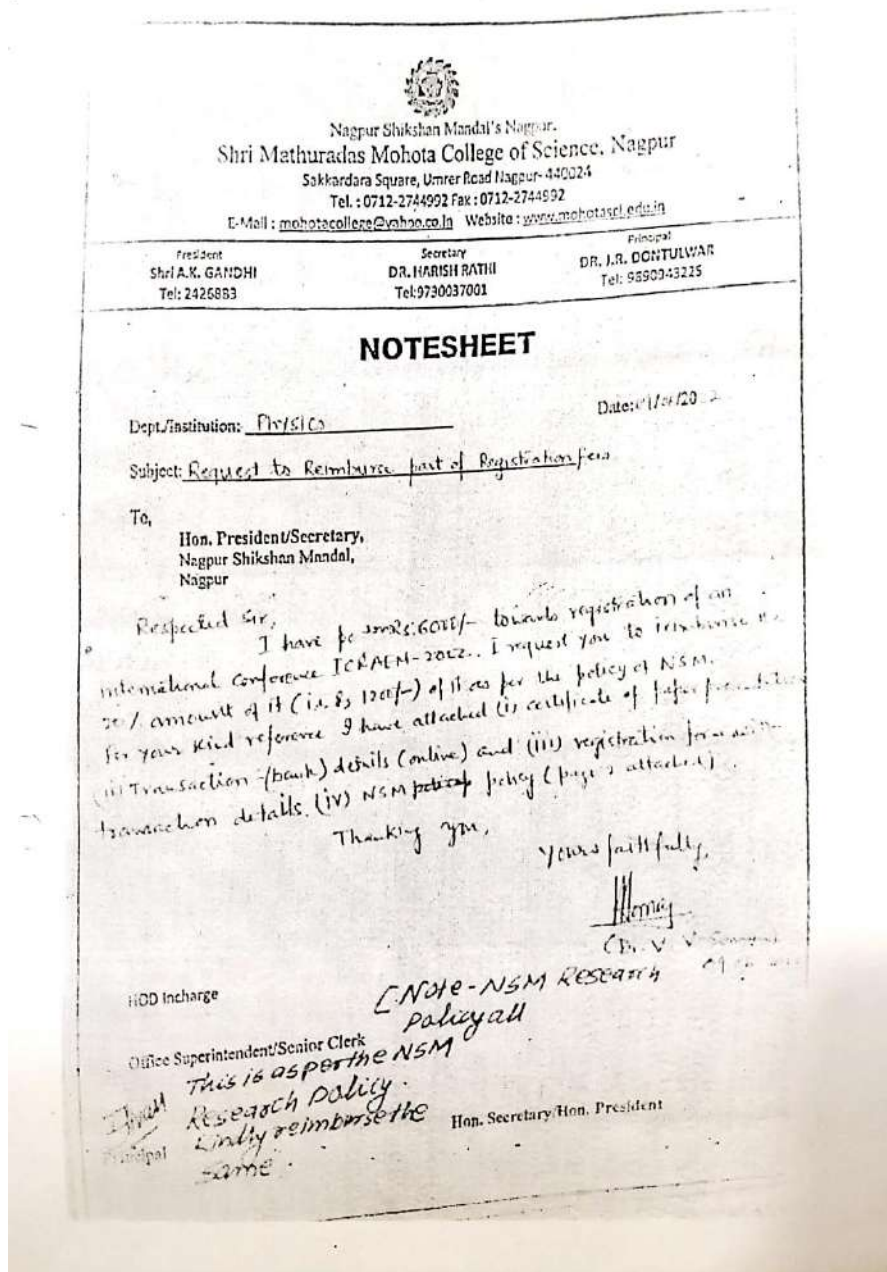 Nagpur Shikshan Mandal's Nagpur.
Shri Mathuradas Mohota College of Science, Nagpur
Sakkardara Square, Umrer Road Nagpur-440024
Tel. : 0712-2744992 Fax : 0712-2744992
E-Mail : mohotacollege@yahoo.co.in Website : www.mohotasci.edu.in
President Secretary Principal
Shri A.K. GANDHI DR. HARISH RATHI DR. J.R. DONTULWAR
Tel: 2426883 Tel:9730037001 Tel:
NOTESHEET
Date:
Dept./Institution: Physics
Subject: Request to Reimburse part of Registration fees
To,
Hon. President/Secretary,
Nagpur Shikshan Mandal,
Nagpur
Respected Sir,
I have towards registration of an
international conference I request you to reimburse
20% amount of it (i.e. Rs 1200/-) of it as per the policy of NSM.
For your kind reference I have attached (i) certificate of paper presentation
(ii) Transaction (bank) details (online) and (iii) registration form with
transaction details. (iv) NSM policy (page attached).
Thanking you,
Yours faithfully,
(Dr. V. V.
HOD Incharge
[Note - NSM Research
Policy all
Office Superintendent/Senior Clerk
This is as per the NSM
Research Policy.
Kindly reimburse the
Principal Hon. Secretary/Hon. President
same.